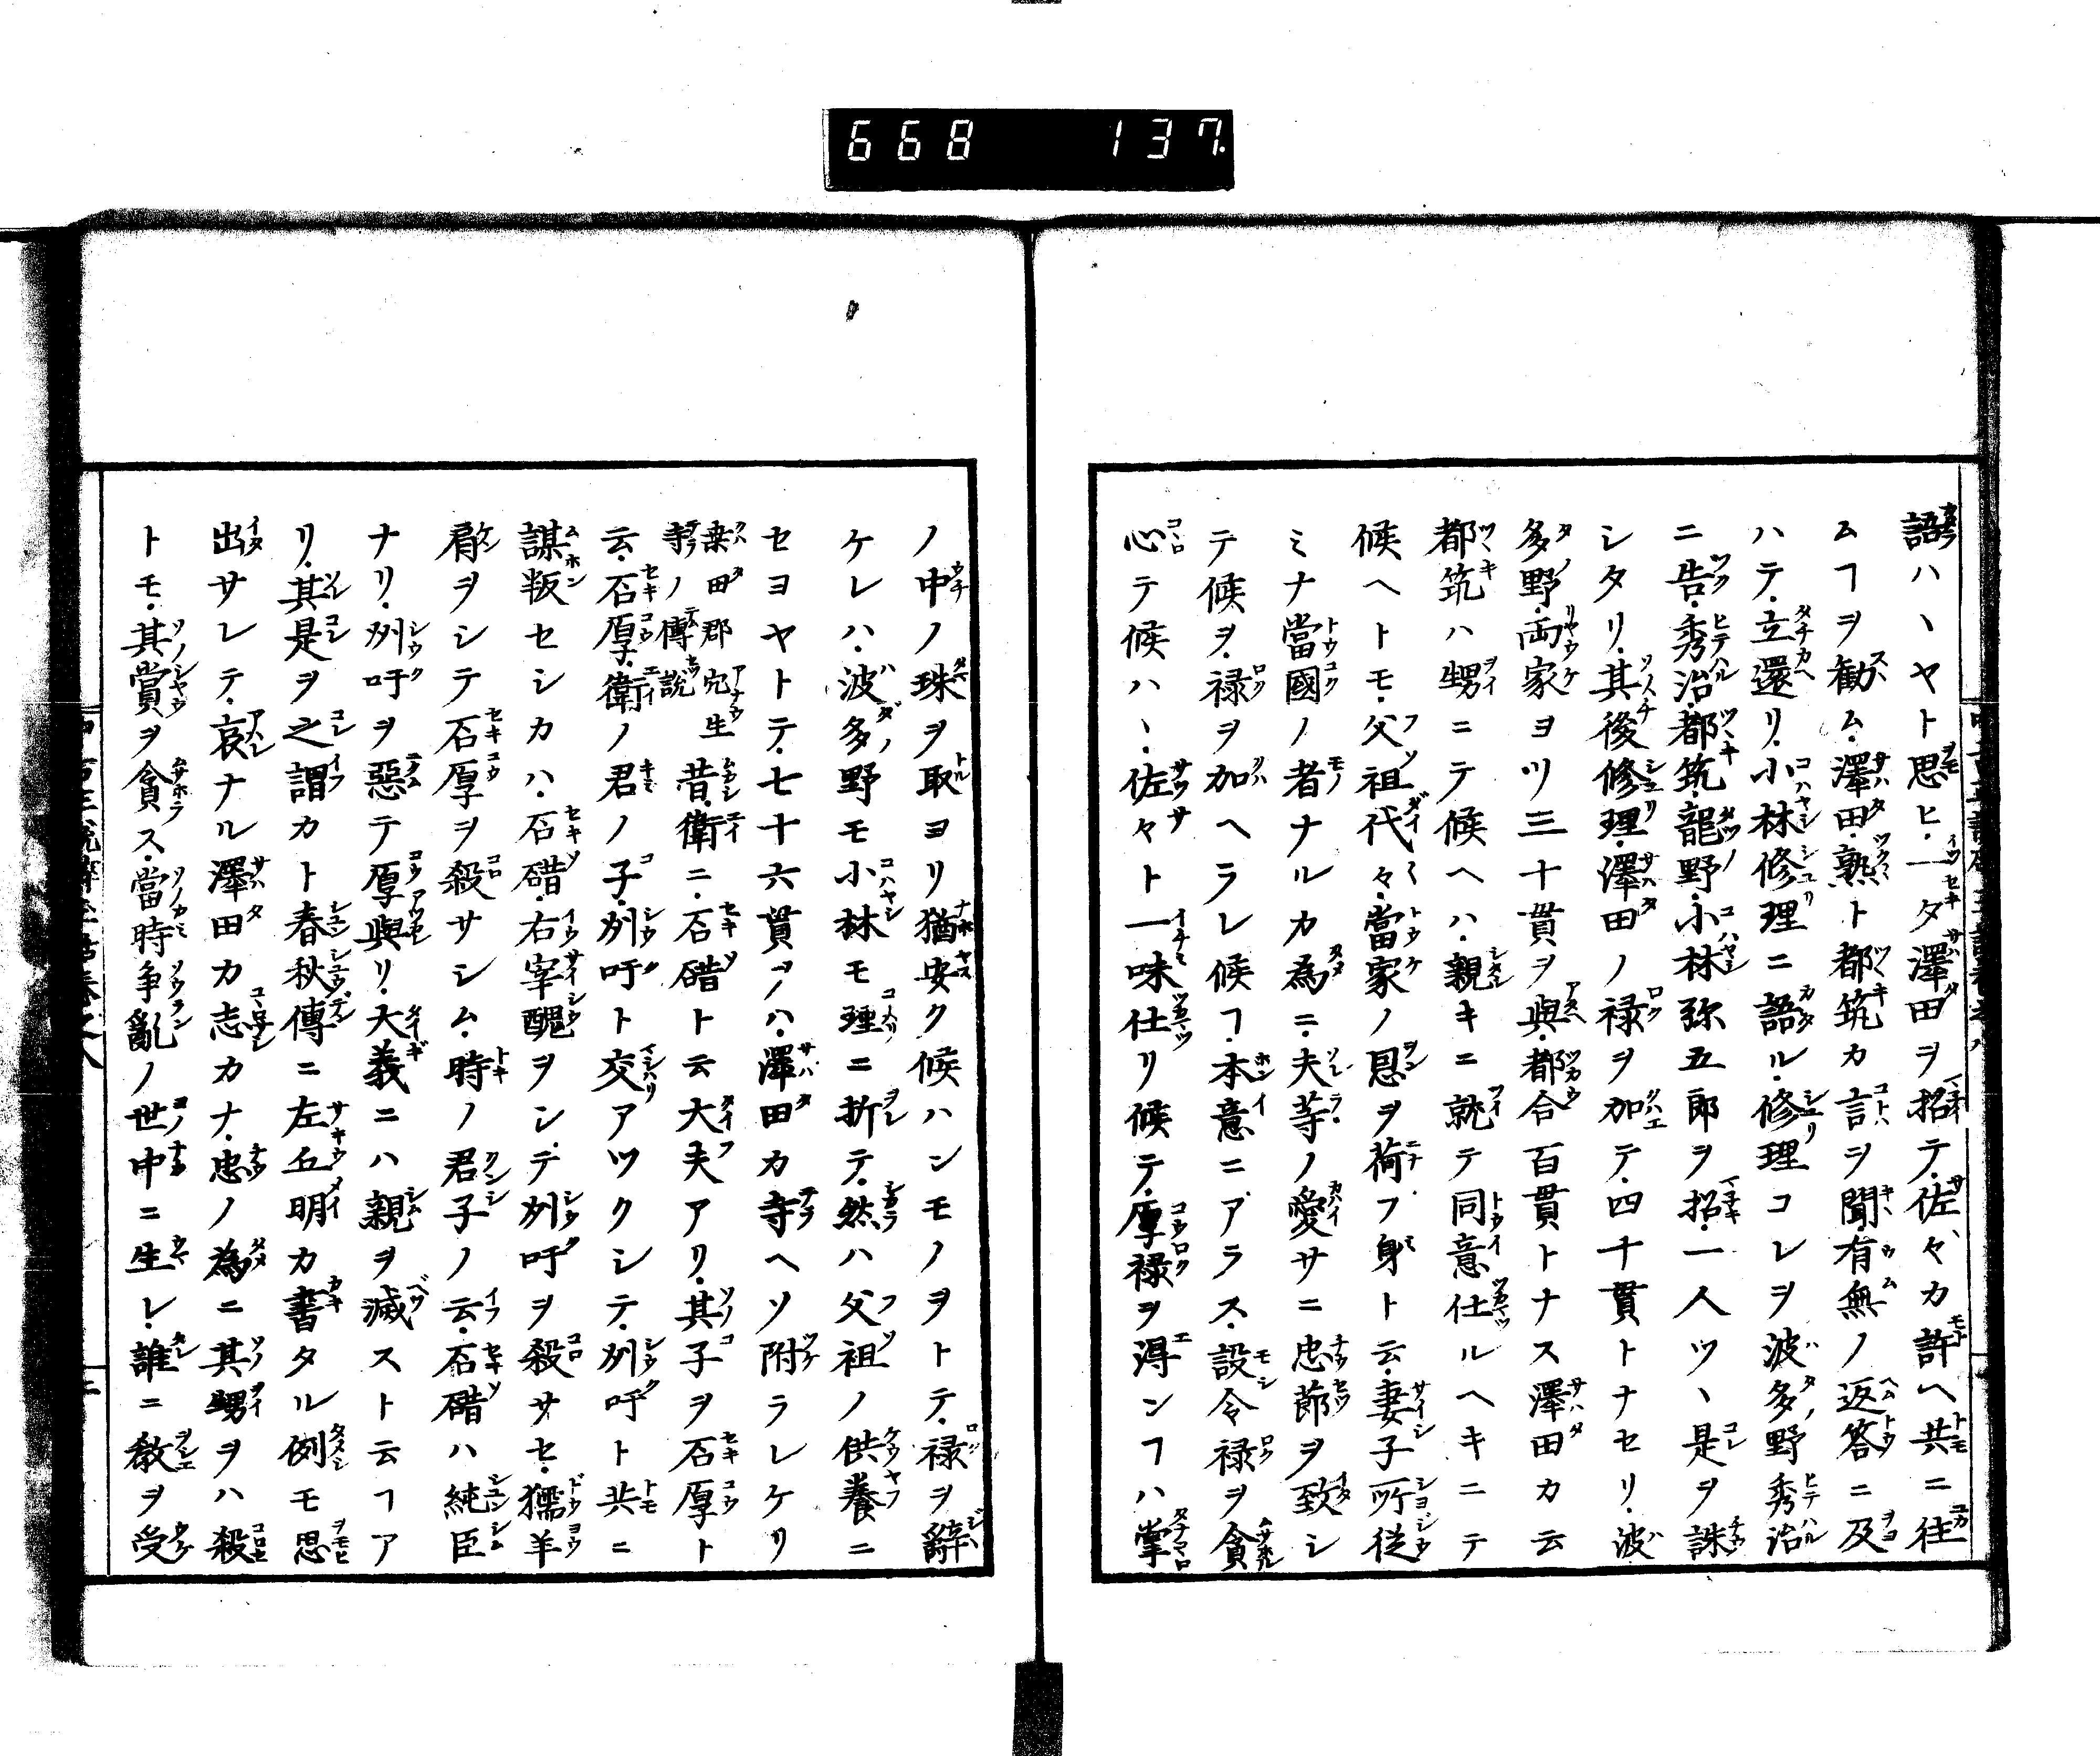 668 137
語ハヽヤト思ヒ一夕澤田ヲ招テ佐々カ許ヘ共ニ往
ムヿヲ勧ム澤田熟ト都筑カ言ヲ聞有無ノ返答ニ及
ハテ立還リ小林修理ニ語ル修理コレヲ波多野秀治
ニ告秀治都筑龍野小林弥五郎ヲ招一人ツヽ是ヲ誅
シタリ其後修理澤田ノ禄ヲ加テ四十貫トナセリ波
多野両家ヨツ三十貫ヲ與都合百貫トナス澤田カ云
都筑ハ甥ニテ候ヘハ親キニ就テ同意仕ルヘキニテ
候ヘトモ父祖代々當家ノ恩ヲ荷フ身ト云妻子所従
ミナ當國ノ者ナルカ為ニ夫等ノ愛サニ忠節ヲ致シ
テ候ヲ禄ヲ加ヘラレ候ヿ本意ニアラス設令禄ヲ貪
心テ候ハヽ佐々ト一味仕リ候テ厚禄ヲ淂ンヿハ掌
ノ中ノ珠ヲ取ヨリ猶安ク候ハンモノヲトテ禄ヲ辭
ケレハ波多野モ小林モ理ニ折テ然ハ父祖ノ供養ニ
セヨヤトテ七十六貫ヿハ澤田カ寺ヘソ附ラレケリ
桒田郡宍生
寺ノ傳説
昔衛ニ石碏ト云大夫アリ其子ヲ石厚ト
云石厚衛ノ君ノ子州吁ト交アツクシテ州吁ト共ニ
謀叛セシカハ石碏右宰醜ヲシテ州吁ヲ殺サセ獳羊
肩ヲシテ石厚ヲ殺サシム時ノ君子ノ云石碏ハ純臣
ナリ州吁ヲ惡テ厚與リ大義ニハ親ヲ滅スト云ヿア
リ其是ヲ之謂カト春秋傳ニ左丘明カ書タル例モ思
出サレテ哀ナル澤田カ志カナ忠ノ為ニ其甥ヲハ殺
トモ其賞ヲ貪ス當時争亂ノ世中ニ生レ誰ニ教ヲ受